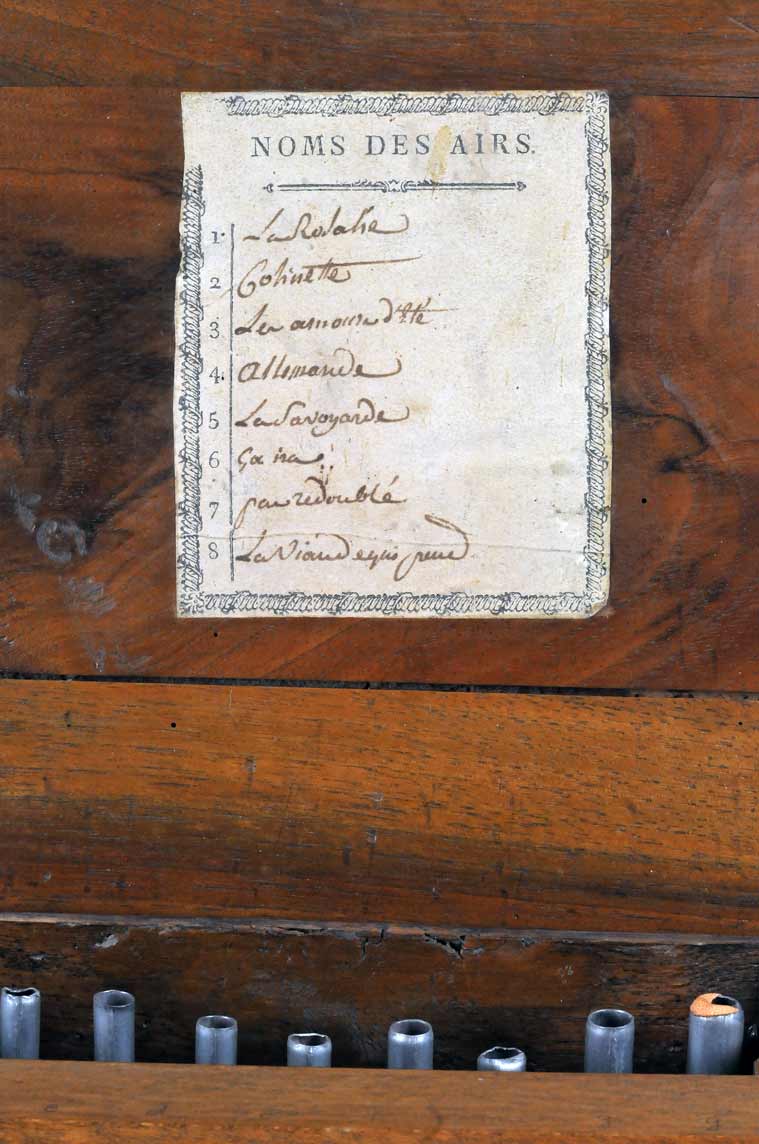 NOMS DES AIRS.
1. La Rosalie
2 Colinette
3 Les amours d'Eté
4. Allemande
5 La Savoyarde
6 ça ira
7 pas redoublé
8 La Viande